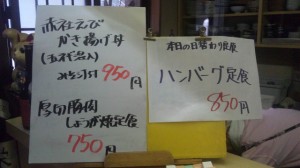 赤社えび
かき揚げ丼
(玉子でとじ入)
みそ汁付 950円
厚切豚肉
しょうが焼定食
750円
本日の日替わり定食
ハンバーグ定食
850円